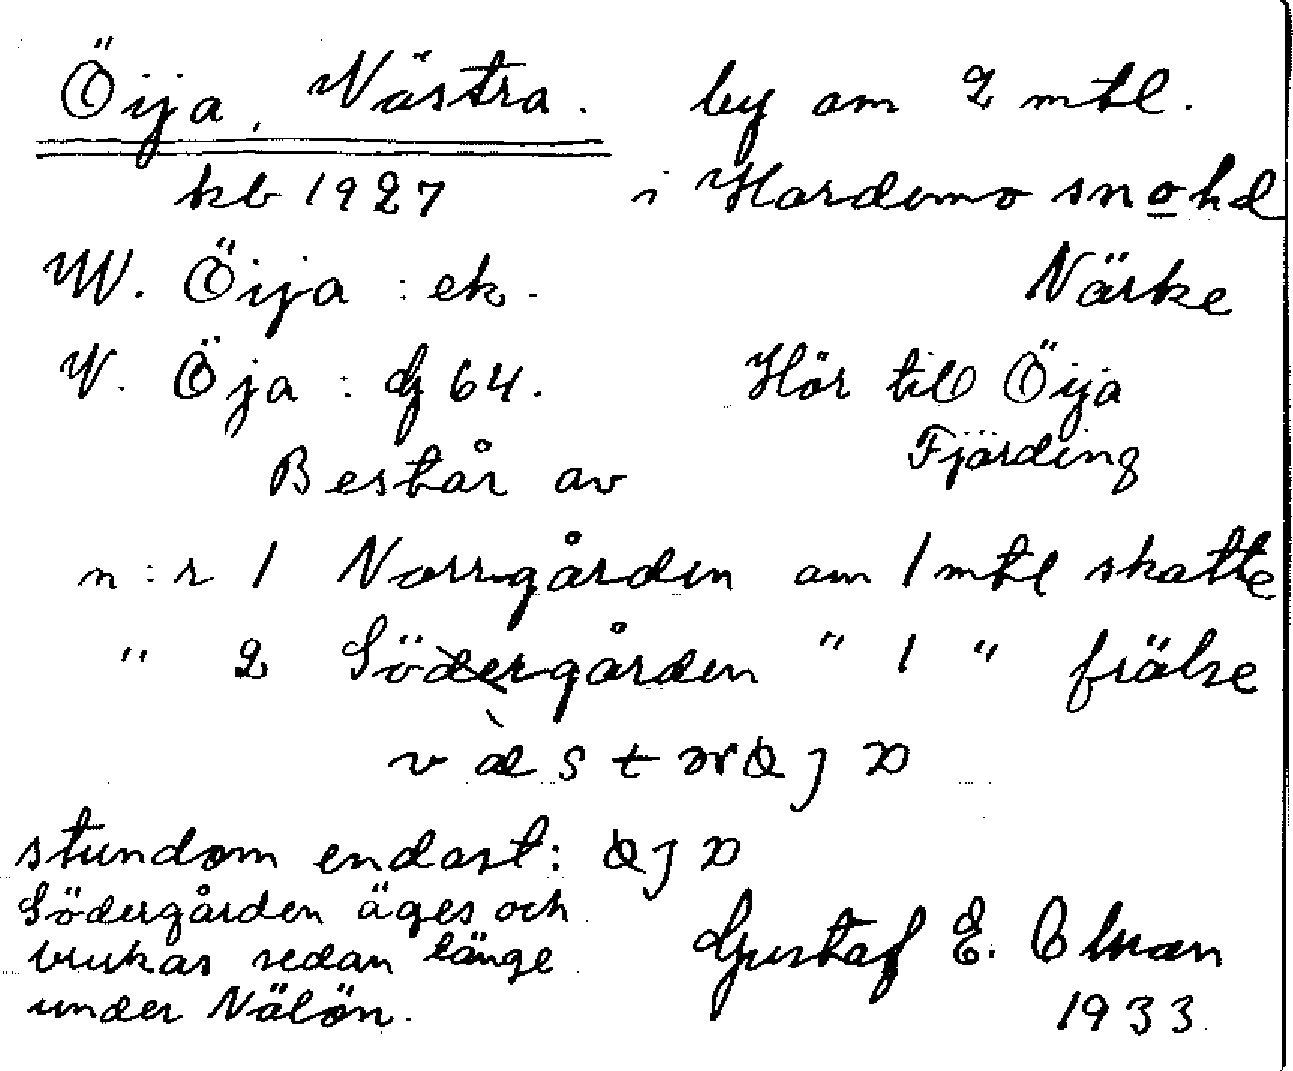 Öija, Västra. by om 2 mtl.
kb 1927 i Hardemo sn o hd
W. Öija : ek. Närke
V. Öja : Gf 64. Hör till Öija
Fjärding
Består av
n:r 1 Norrgården om 1 mtl skatte
" 2 Södergården " 1 " frälse
stundom endast:
Södergården äges och
brukas sedan länge
under Nälön.
Gustaf E.
1933.